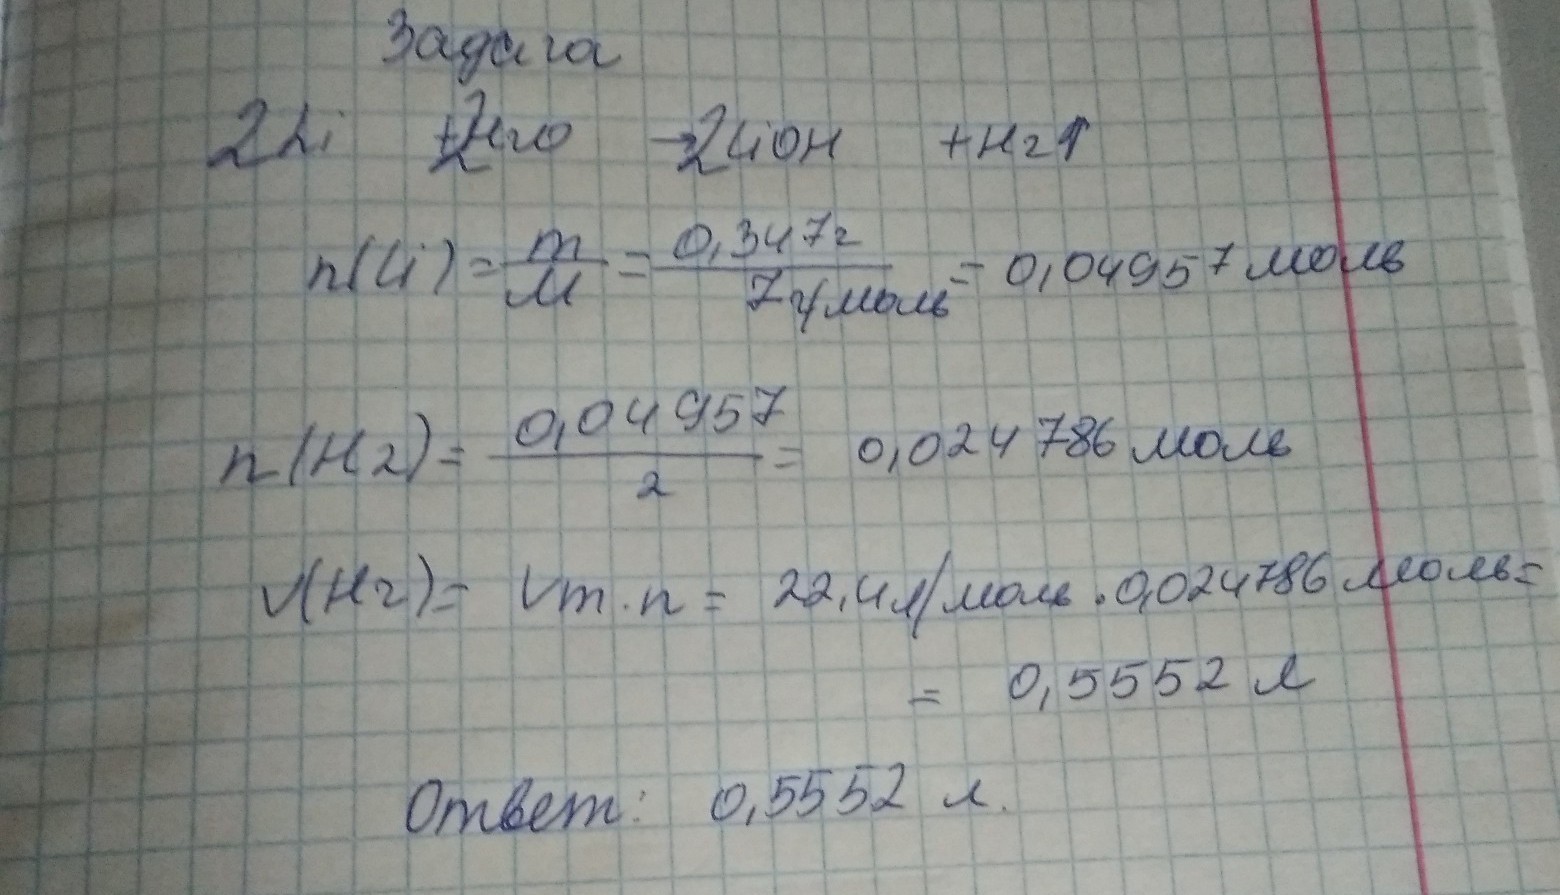 Задача
2Li + 2H2O → 2LiOH + H2↑
n(Li) = m/M = 0,347г/7г/моль = 0,04957 моль
n(H2) = 0,04957/2 = 0,024786 моль
V(H2) = Vm · n = 22,4л/моль · 0,024786 моль =
= 0,5552 л
Ответ: 0,5552 л.